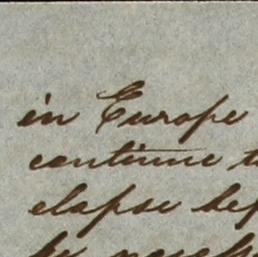 in Europe
continue t
elapse bef
be